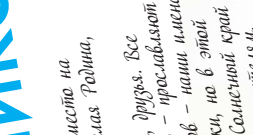 место на
лая Родина,
друзья. Все
– прославляют
в – наши имена
ки, но в этой
Солнечный край